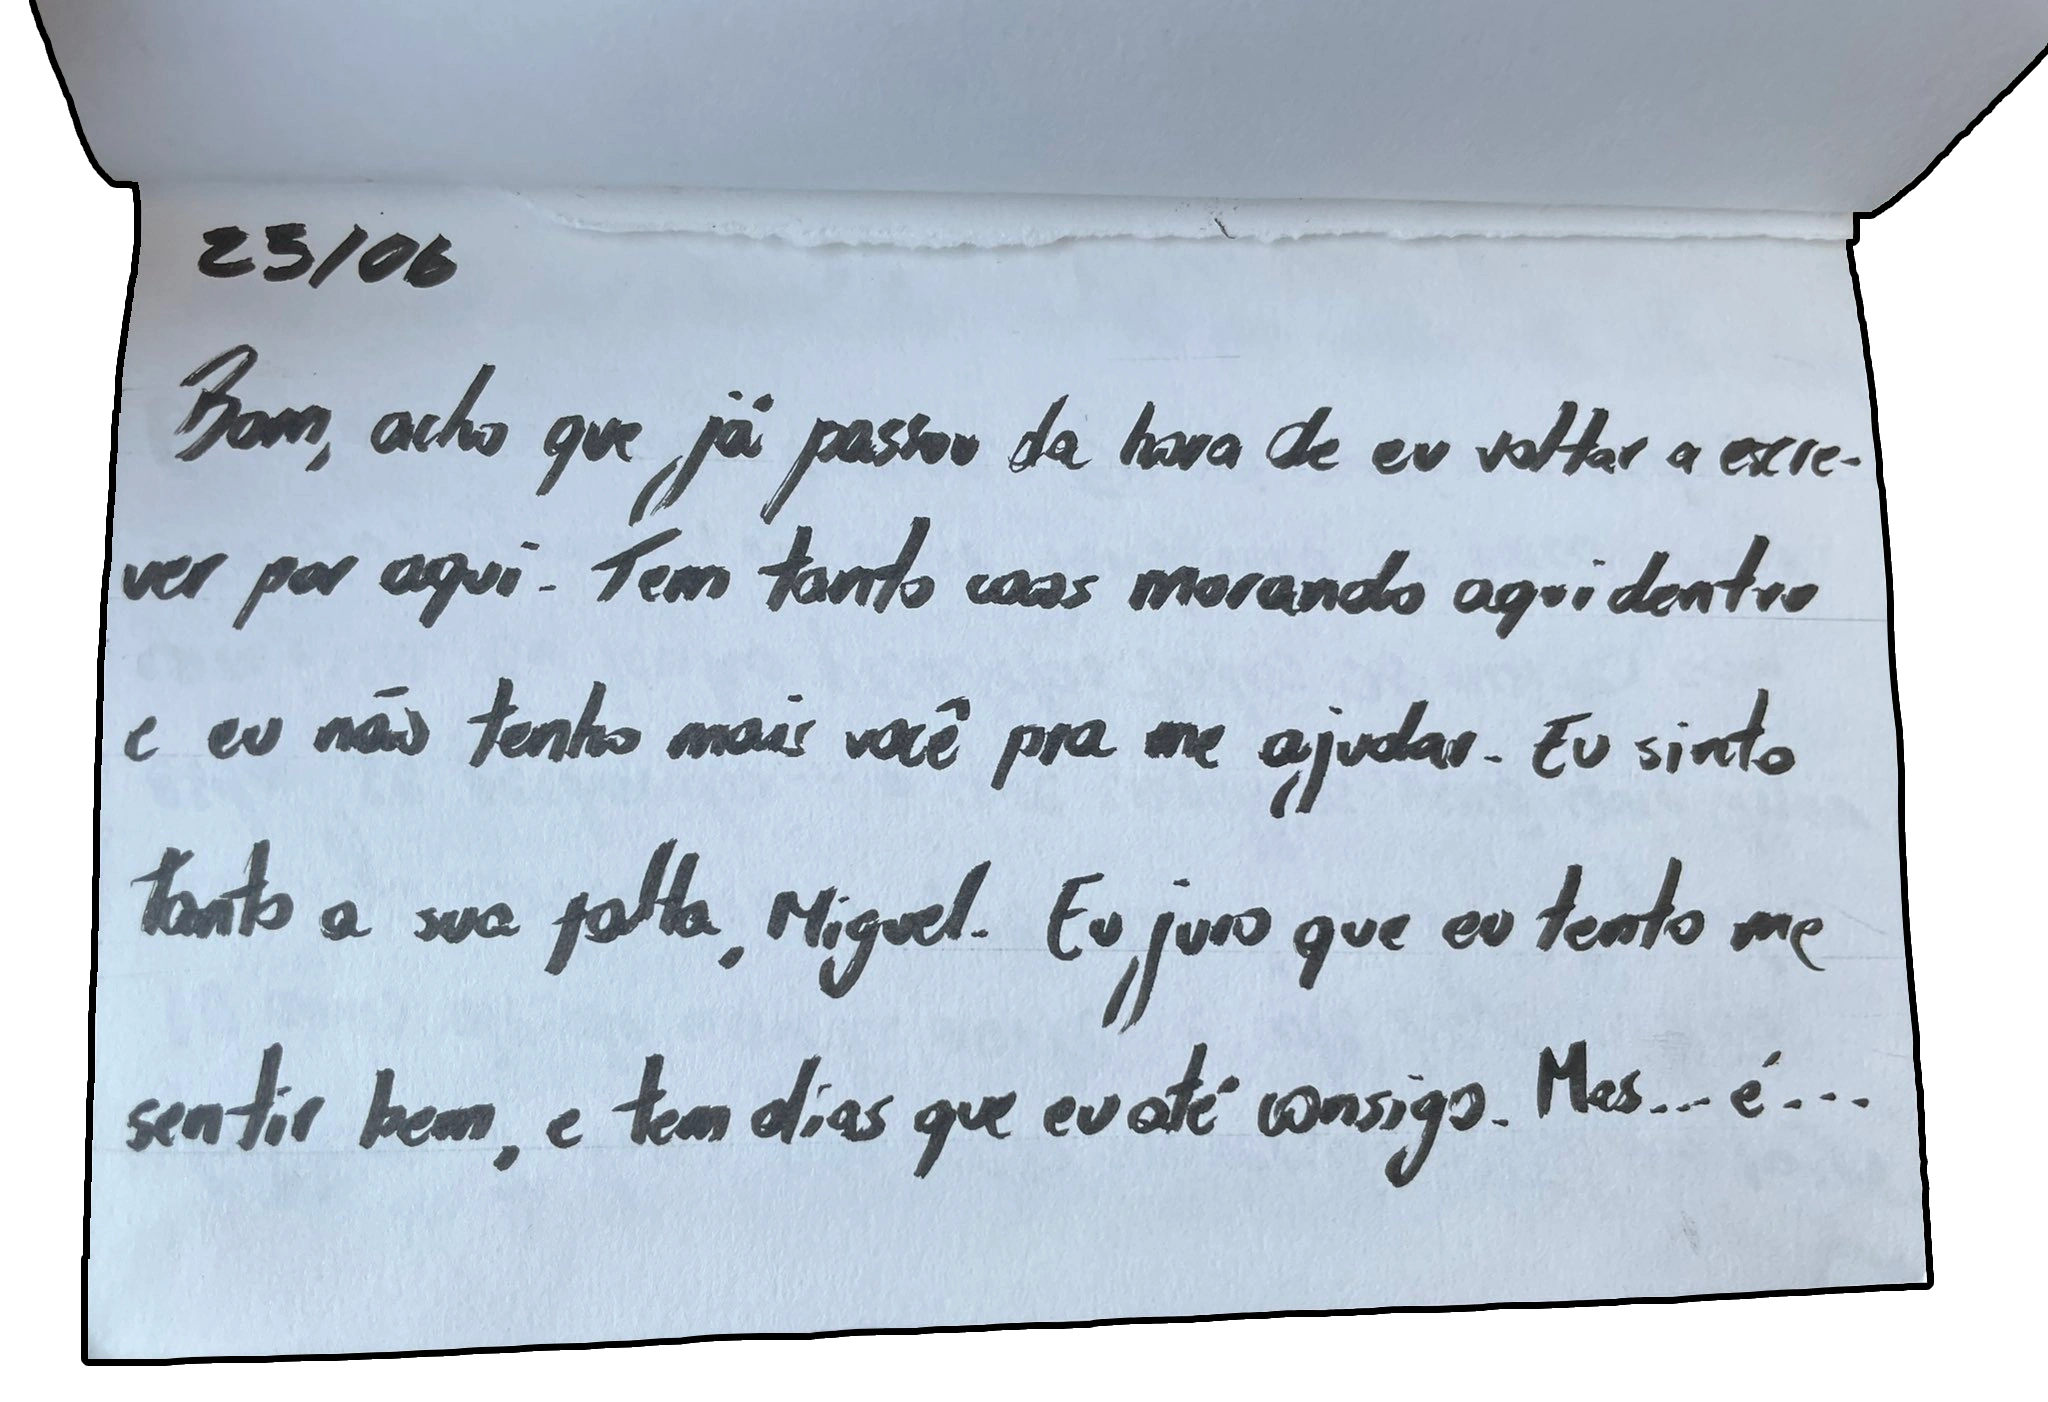 25/06
Bom, acho que já passou da hora de eu voltar a escre-
ver por aqui. Tem tanto caos morando aqui dentro
e eu não tenho mais você pra me ajudar. Eu sinto
tanto a sua falta, Miguel. Eu juro que eu tento me
sentir bem, e tem dias que eu até consigo. Mas... é...